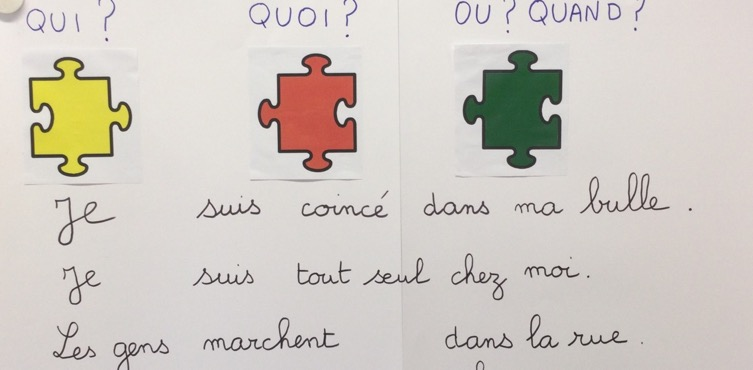 QUI ? QUOI ? OU ? QUAND ?
Je suis coincé dans ma bulle .
Je suis tout seul chez moi .
Les gens marchent dans la rue .